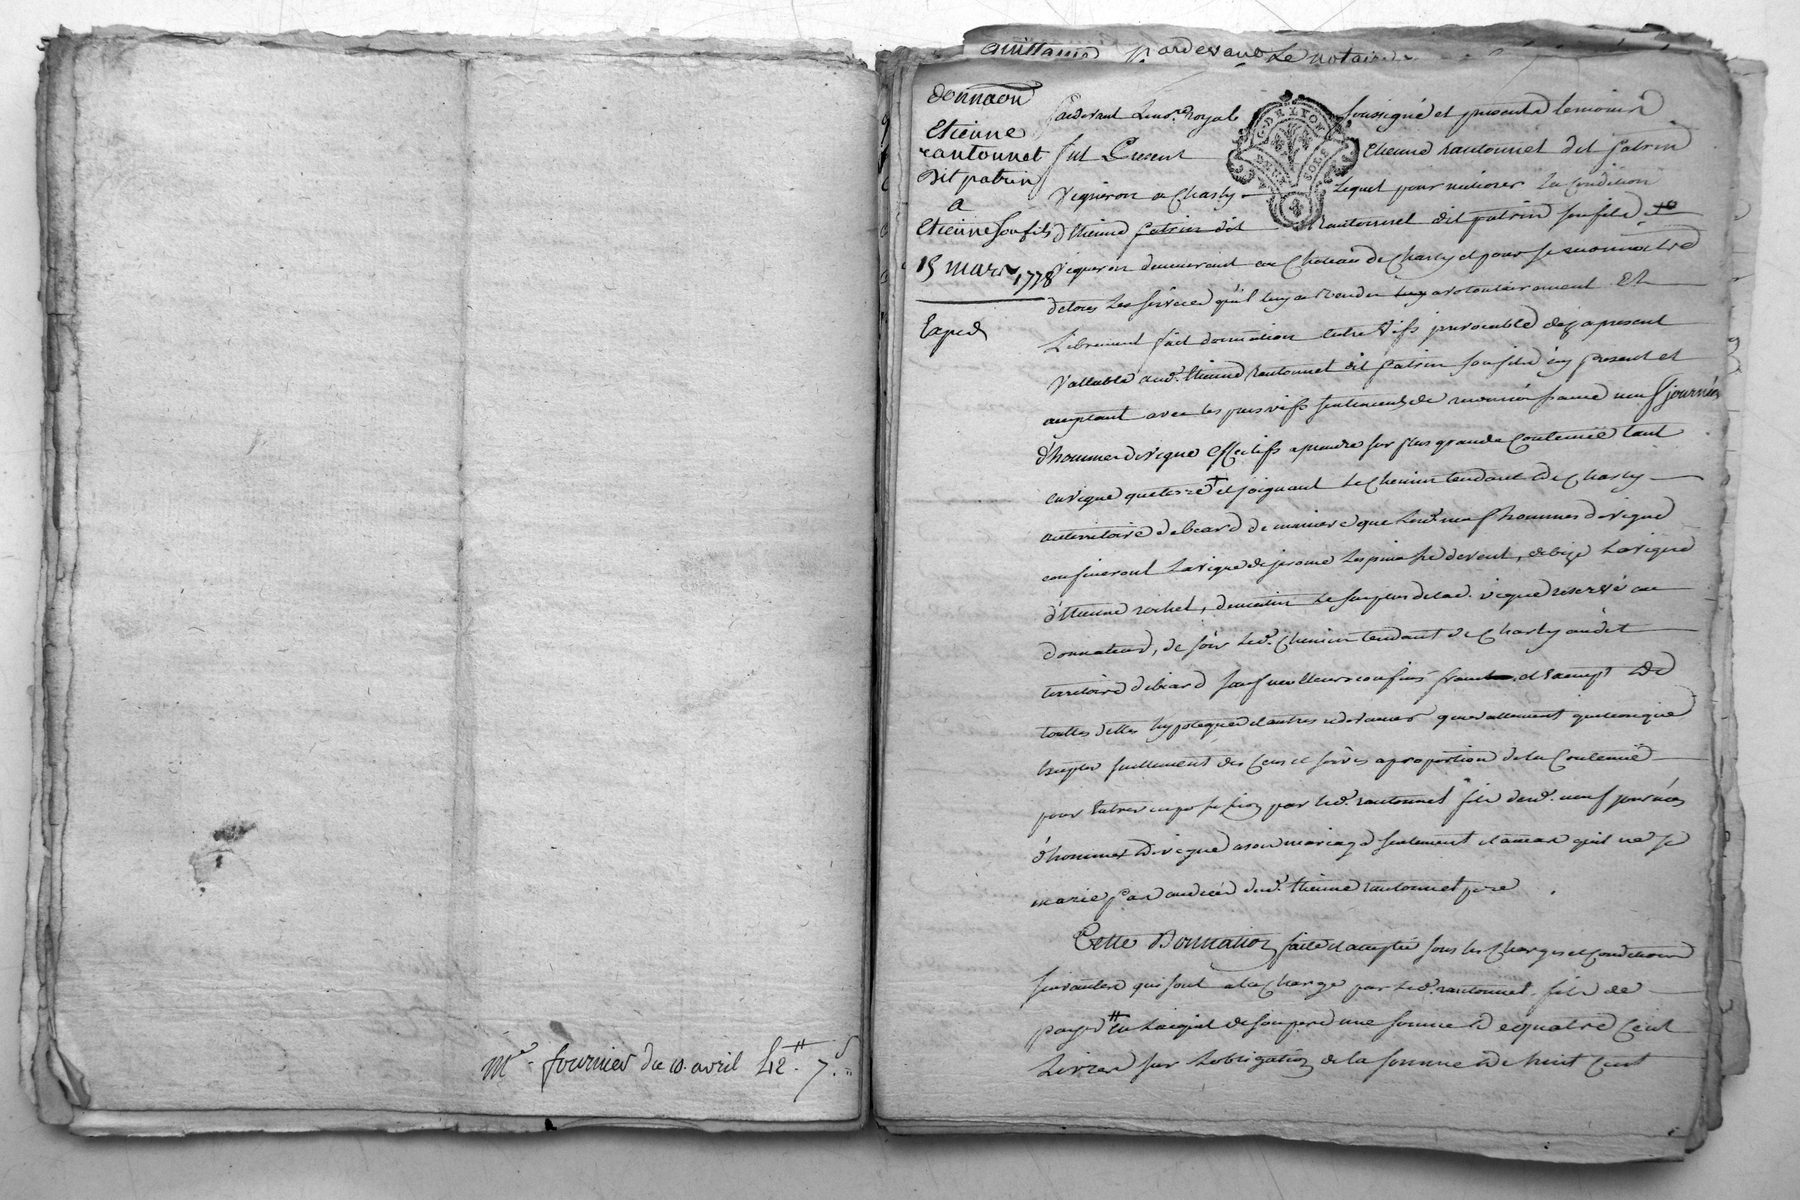 mr. fournier du 10. avril 42⧺ 7s
quittance pardevant Le notaire
donnaon
Etienne
rantonnet
dit patrin
a
Etienne son fils
15 mars 1778
Exped
G. DE LYON
DEUX SOLS
Pardevant Le nore. Royal soussigné et presents temoins
fut Present Etienne rantonnet dit patrin
Vigneron a Charly Lequel pour la Condition
d'Etienne patrin dit rantonnet dit patrin son fils
Vigneron demeurant au Chateau de Charly et pour
de tous Les services qu'il luy a rendu volontairement Et
Librement fait donnation entre Vifs irrevocable des a present
Vallable aud. Etienne rantonnet dit patrin son fils icy present et
acceptant avec les plus vifs sentiments de reconnoissance neuf journées
d'hommes de vigne effectifs a prendre sur plus grande Contenüe tant
en vigne que terre et joignant Le Chemin tendant de Charly
au territoire de beard de maniere que Lesd. neuf hommes de vigne
confineront La vigne de jerome de vent, de bize La vigne
d'Etienne rochet, de matin Le surplus de lad. vigne reservé au
donnateur, de soir Led. Chemin tendant de Charly audit
territoire de beard sauf meilleurs confins franc et exempt de
touttes dettes hypoteques et autres redevances generallement quelconque
Excepté seullement des Cens et servis a proportion de la Contenüe
pour Entrer en possession par led. rantonnet fils desd. neuf journées
d'hommes de vigne a son mariage seulement et a moins qu'il ne se
marie pas au deces dud. Etienne rantonnet pere.
Cette Donnation faitte et acceptée sous les Charges et Conditions
suivantes qui sont a la Charge par led. rantonnet fils de
payer en L'acquit de son pere une somme de quatre Cent
Livres sur L'obligation de la somme de huit Cent